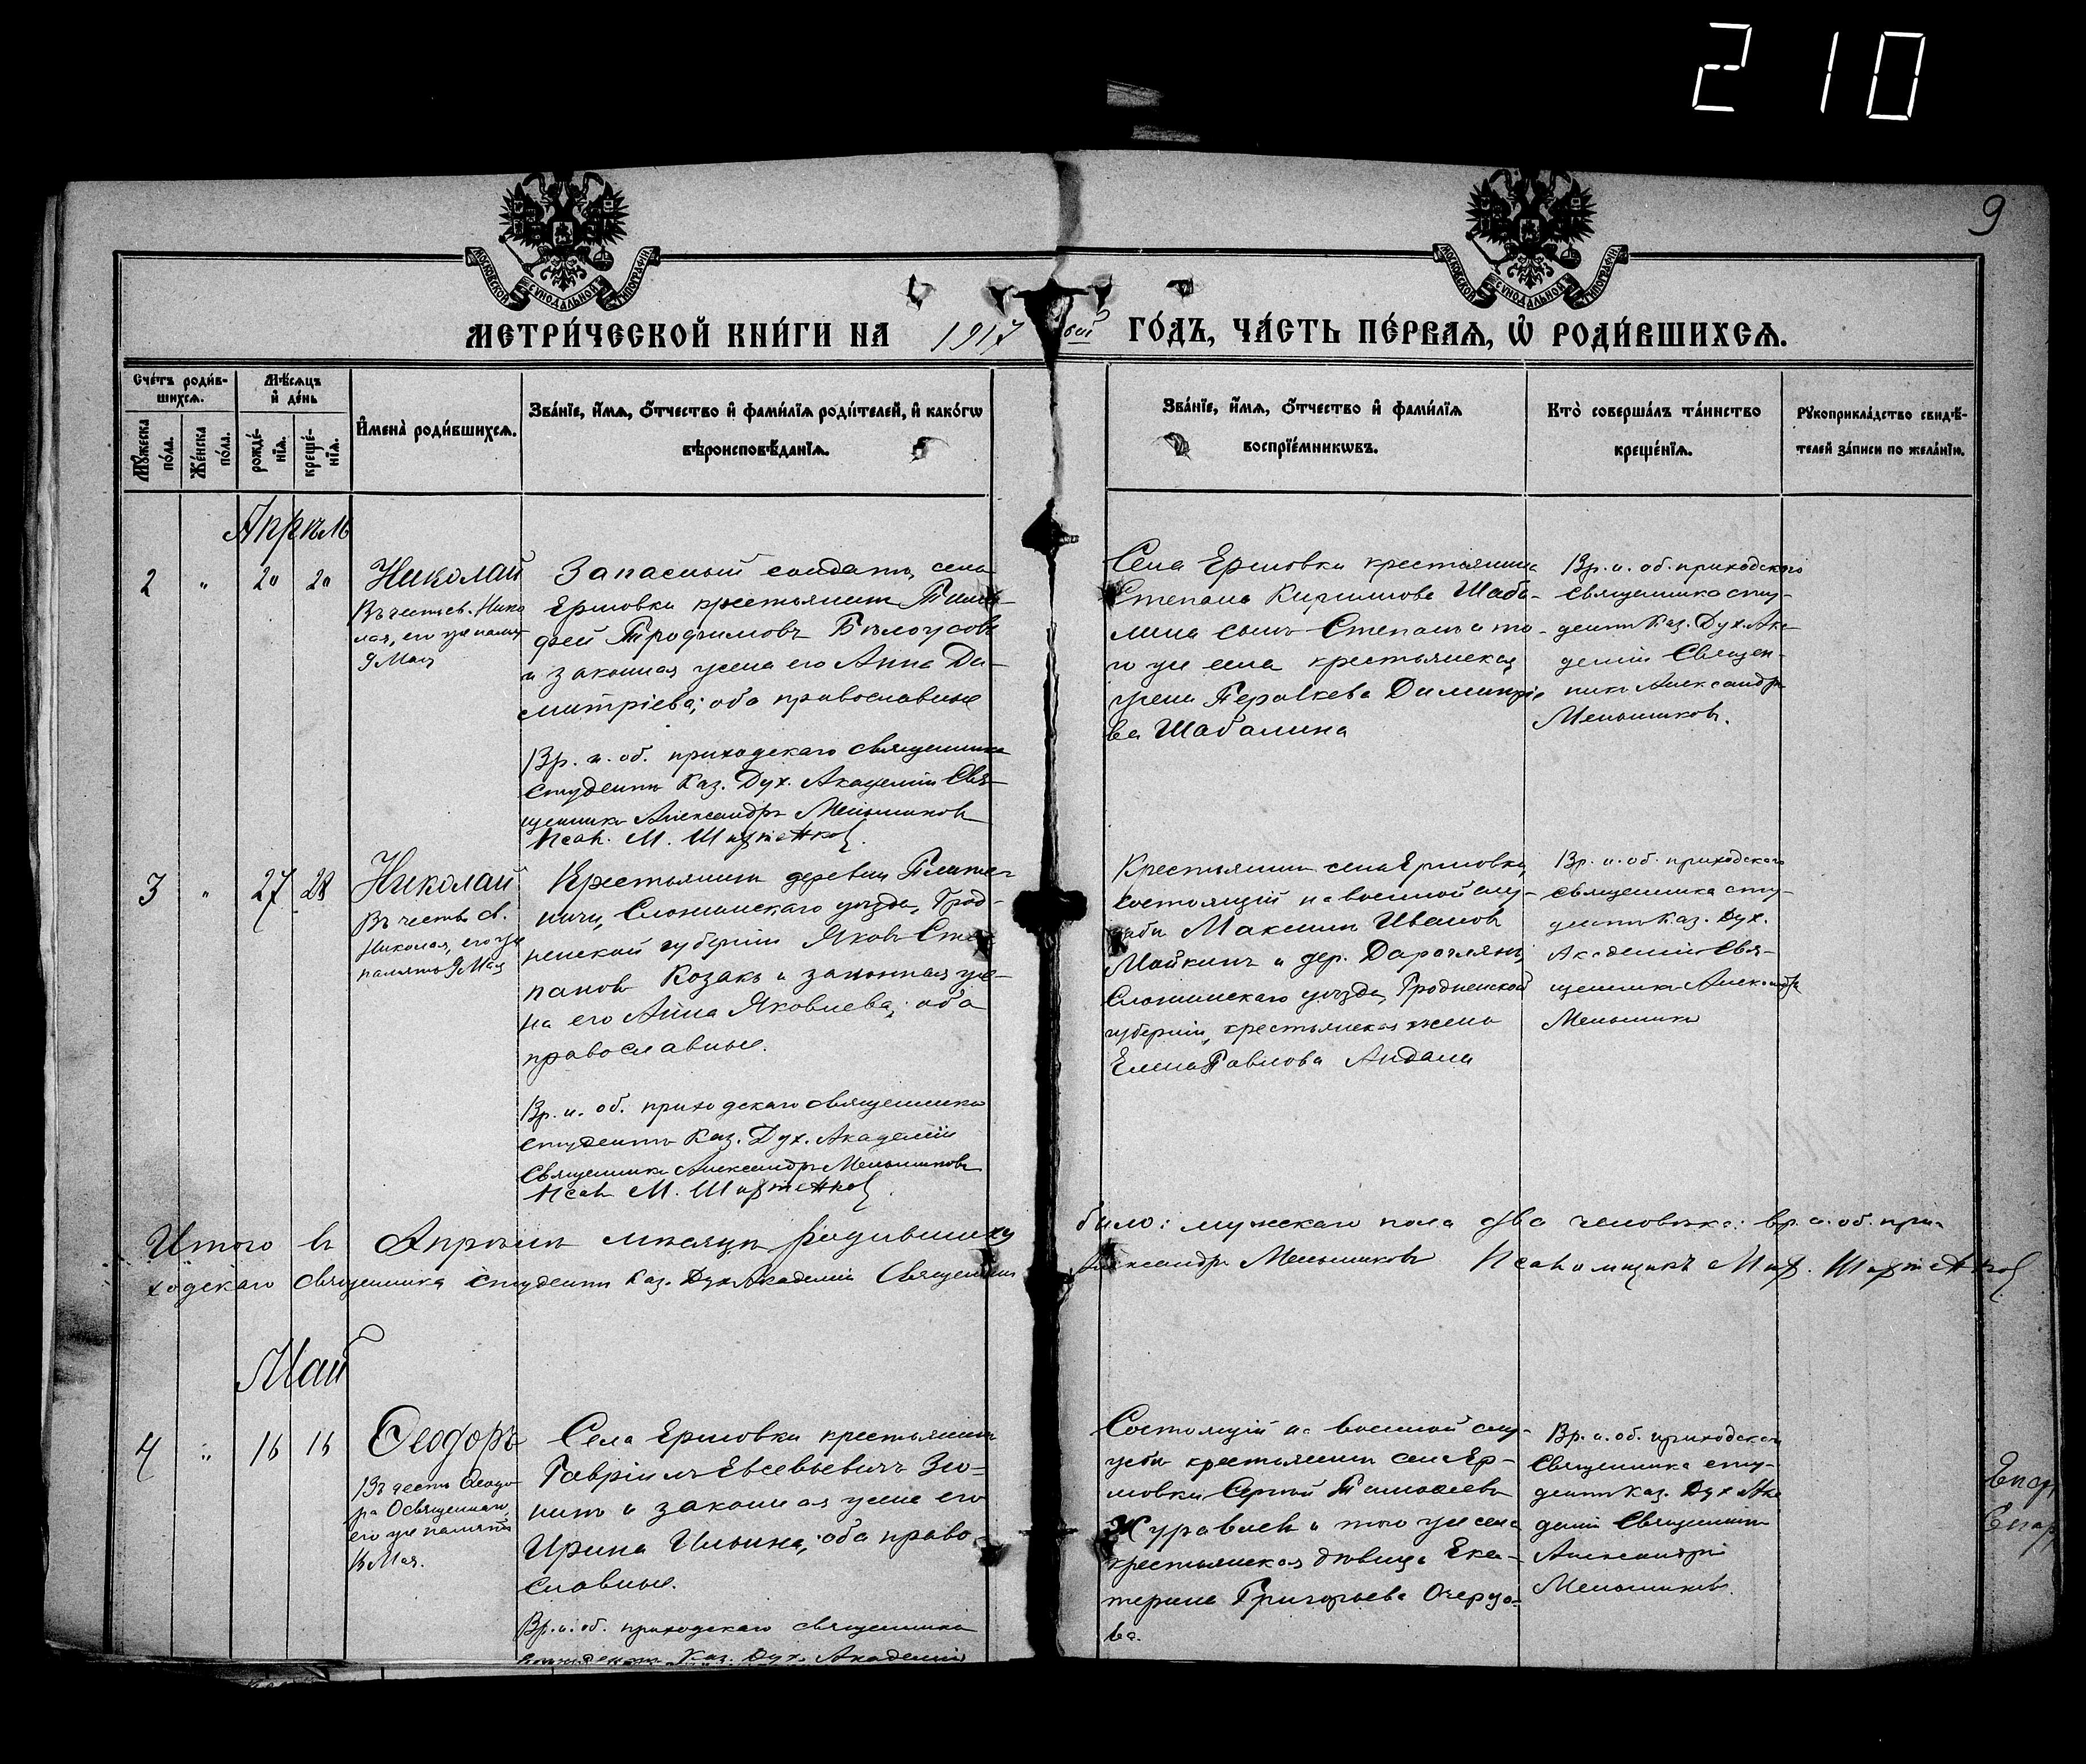 210
9
МОСКОВСКОЙ СѴНОДАЛЬНОЙ ТИПОГРАФІИ
МОСКОВСКОЙ СѴНОДАЛЬНОЙ ТИПОГРАФІИ
МЕТРИ́ЧЕСКОЙ КНИ́ГИ НА 1917 ый ГО́ДЪ, ЧА́СТЬ ПЕ́РВАѦ, Ѡ҆ РОДИ́ВШИХСѦ.
Сче́тъ роди́в-
шихсѧ.
Мѣ́сѧцъ
и҆ де́нь
Мꙋ́жеска
по́ла.
Же́нска
по́ла.
рожде́-
нїѧ.
креще́-
нїѧ.
И҆мена̀ роди́вшихсѧ.
Зва́нїе, и҆́мѧ, ѻ҆́тчество и҆ фами́лїѧ роди́телей, и҆ како́гѡ
вѣроисповѣ́данїѧ.
Зва́нїе, и҆́мѧ, ѻ҆́тчество и҆ фами́лїѧ
воспрїе́мникѡвъ.
Кто̀ соверша́лъ та́инство
креще́нїѧ.
Рꙋкоприкла́дство свидѣ́-
телей за́писи по жела́нїю.
Апрѣль
2 " 20 20
Николай
Въ честь св. Нико
лая, его же память
9 Мая
Запасный солдатъ, села
Ершовки крестьянинъ Тимо-
фей Трофимовъ Бѣлоусовъ
и законная жена его Анна Ди-
митріева; оба православные
Вр. и. об. приходскаго священника
студентъ Каз. Дух. Академіи Свя-
щенникъ Александръ Меньшиковъ
Псал. М.
Села Ершовки крестьянина
Степана Кириллова Шаба-
лина сынъ Степанъ и то-
го же села крестьянская
жена Димитріе
ва Шабалина
Вр. и. об. приходского
священника сту-
дентъ Каз. Дух. Ака
деміи Священ-
никъ Александръ
Меньшиковъ.
3 " 27 28
Николай
Въ честь св.
Николая, его же
память 9 Мая
Крестьянинъ деревни
Слонимскаго уѣзда, Грод-
ненской губерніи Яковъ Сте-
пановъ Козакъ и законная же-
на его Анна Яковлева; оба
православные.
Вр. и. об. приходскаго священника
студентъ Каз. Дух. Академіи
Священникъ Александръ Меньшиковъ
Псал. М.
Крестьянинъ села Ершовки,
состоящій на военной слу-
жбѣ Максимъ Ивановъ
Майкинъ и дер.
Слонимскаго уѣзда, Гродненской
губерніи, крестьянская жена
Елена Павлова
Вр. и. об. приходского
священника сту-
дентъ Каз. Дух.
Академіи Свя-
щенникъ Александръ
Меньшиковъ
Итого въ Апрѣлѣ мѣсяцѣ родившихся было: мужскаго пола два человѣка: вр. и. об. при-
ходскаго священника студентъ Каз. Дух Академіи Священникъ Александръ Меньшиковъ Псаломщикъ
Май
4 " 16 16
Ѳеодоръ
Въ честь Ѳеодо-
ра Освященнаго,
его же память
16 Мая.
Села Ершовки крестьянинъ
Гавріилъ Евсевьевичъ
и законная жена его
Ирина Ильина, оба право-
славные.
Вр. и. об. приходскаго священника
студентъ Каз. Дух. Академіи
Состоящій на военной слу-
жбѣ крестьянинъ села Ер-
шовки Сергѣй
Журавлевъ и того же села
крестьянская дѣвица Ека-
терина Григорьева
ва.
Вр. и. об. приходскаго
священника сту-
дентъ Каз. Дух Ака
деміи Священникъ
Александръ
Меньшиковъ.